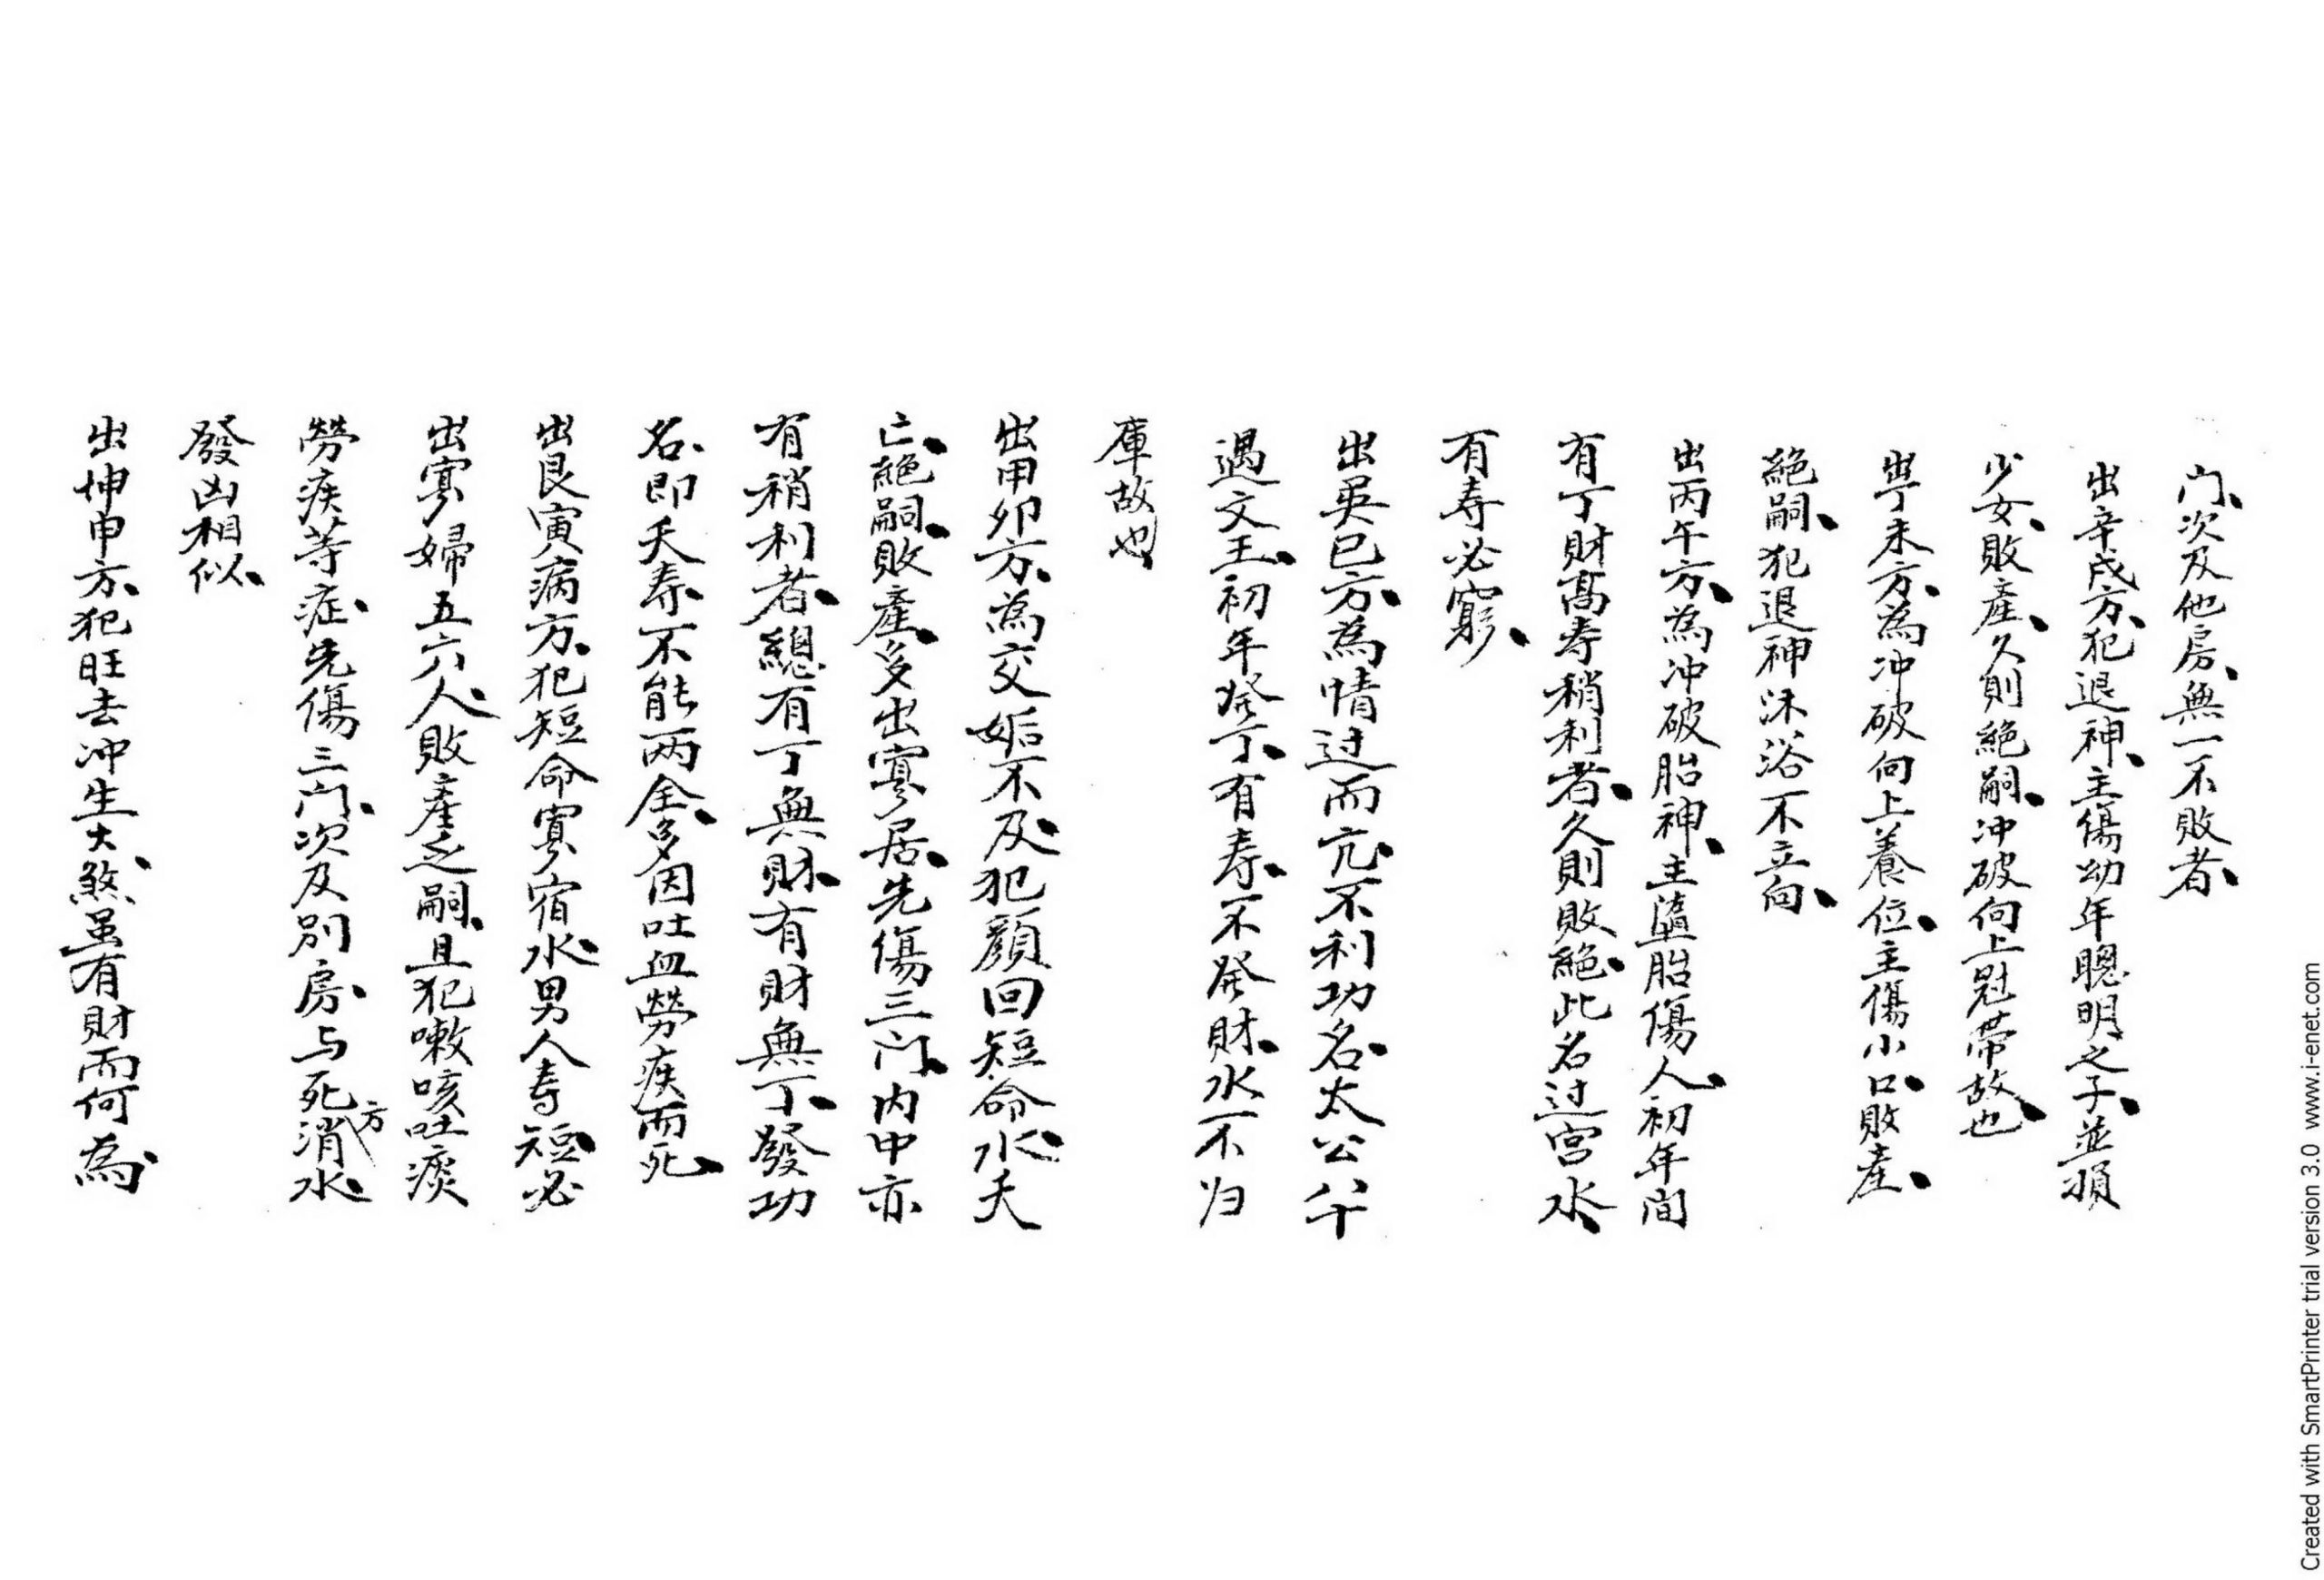 门、次及他房、無一不敗者、
出辛戌方、犯退神、主傷幼年聰明之子、並損
少女、敗產、久則絕嗣、冲破向上冠帶故也、
出丁未方、為冲破向上養位、主傷小口、敗產、
絕嗣、犯退神沐浴不立向、
出丙午方、為冲破胎神、主墮胎傷人、初年間
有丁財高寿稍利者、久則敗絕、此名过宮水、
有寿必窮、
出巽巳方、為情过而亢、不利功名、太公八十
遇文王、初年発丁、有寿、不発財、水不归
庫故也
出甲卯方、為交姤不及、犯顏回短命水、夭
亡、絕嗣、敗產、多出寡居、先傷三门、内中亦
有稍利者、總有丁無財、有財無丁、發功
名、即夭寿、不能两全、多因吐血勞疾而死、
出艮寅病方、犯短命寡宿水、男人寿短、必
出寡婦五六人、敗產乏嗣、且犯嗽咳吐痰
勞疾等症、先傷三门、次及別房、与死方消水、
發凶相似、
出坤申方、犯旺去冲生大煞、虽有財而何為、
Created with SmartPrinter trial version 3.0 www.i-enet.com